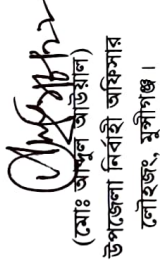 (মোঃ আব্দুল আউয়াল)
উপজেলা নির্বাহী অফিসার
লৌহজং, মুন্সীগঞ্জ।